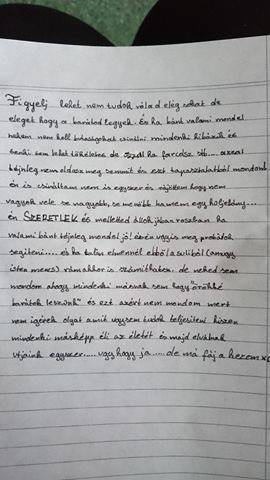 Figyelj lehet nem tudok rólad elég sokat de
eleget hogy a barátod legyek. És ha bánt valami mondd
nekem nem kell butaságokat csinálni mindenki hibázik és
senki sem lehet tökéletes de ha farcolsz stb.... azzal
tényleg nem oldasz meg semmit és ezt tapasztalatból mondom
én is csináltam nem is egyszer és rájöttem hogy nem
vagyok vele se nagyobb, se menőbb hanem egy hülye....
én SZERETLEK és melletted állok jóban rosszban ha
valami bánt tényleg mondd jó! én úgyis meg próbálok
segíteni..... és ha talán elmennél ebből a suliból (amugy
isten ments) rám akkor is számíthatsz.. de neked sem
mondom ahogy mindenki másnak sem hogy "örökké
barátok leszünk" és ezt azért nem mondom mert
nem ígérek olyat amit úgysem tudok teljesíteni hiszen
mindenki másképp éli az életét és majd elválnak
útjaink egyszer..... ugy hogy ja .....de má fáj a kezem xd